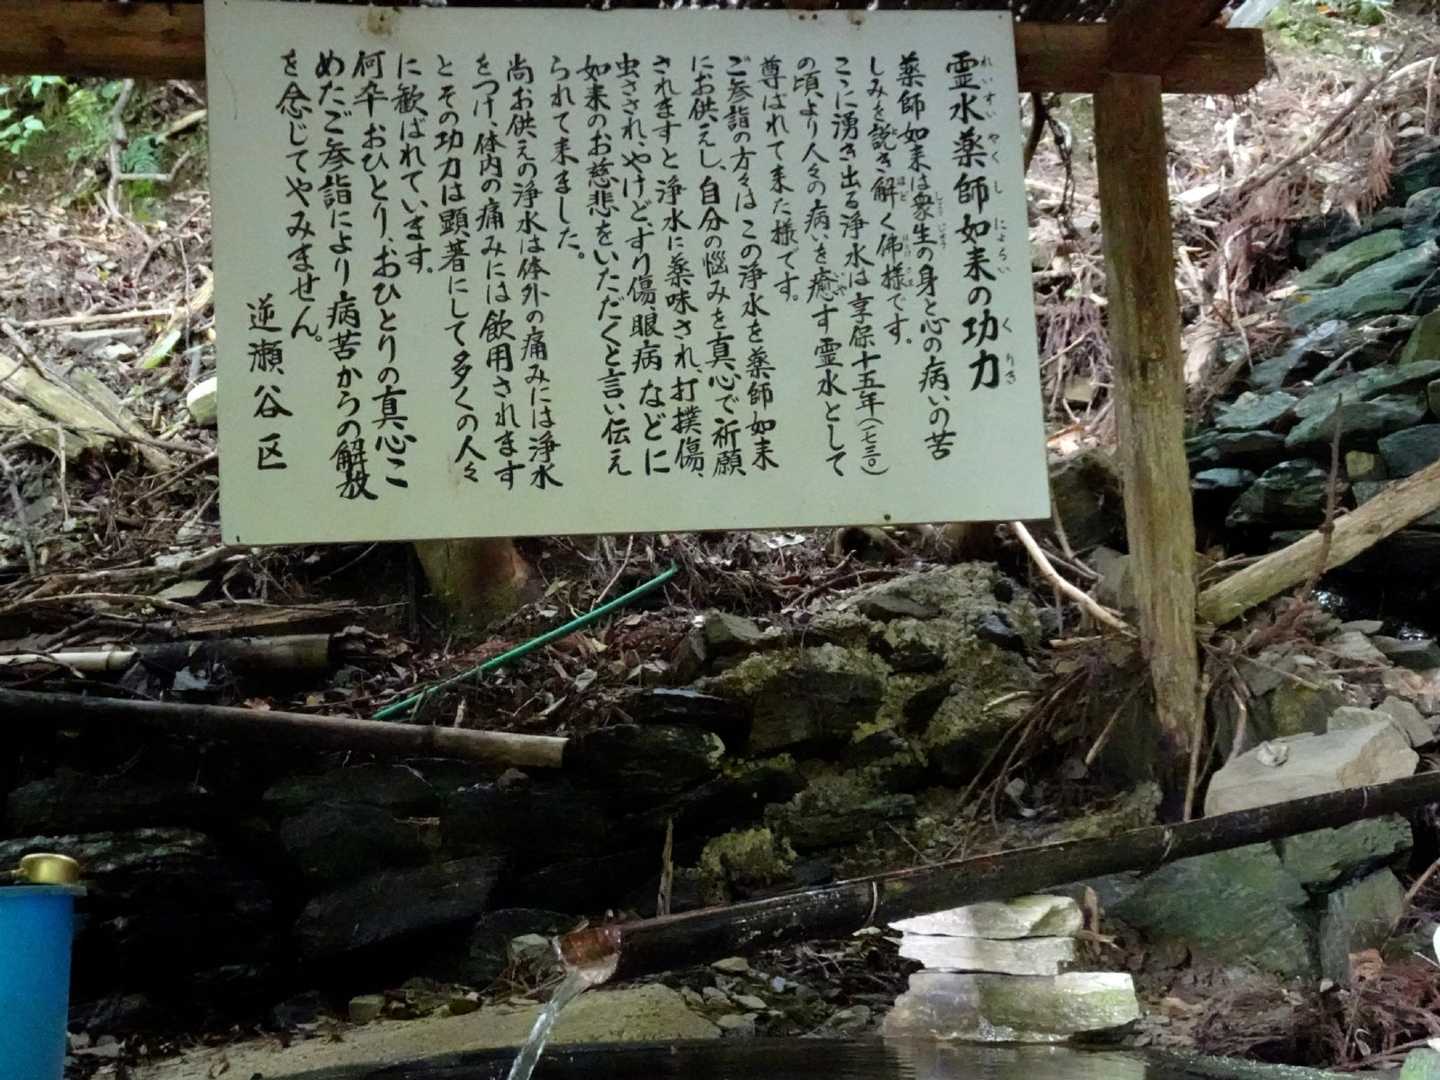 霊水薬師如来の功力
れいすいやくしにょらいのくりき
薬師如来は衆生の身と心の病いの苦
しみを説き解く佛様です。
ここに湧き出る浄水は享保十五年(一七三〇)
の頃より人々の病いを癒す霊水として
尊ばれて来た様です。
ご参詣の方々はこの浄水を薬師如来
にお供えし、自分の悩みを真心で祈願
されますと浄水に薬味され、打撲傷、
虫さされ、やけど、すり傷、眼病などに
如来のお慈悲をいただくと言い伝え
られて来ました。
尚お供えの浄水は体外の痛みには浄水
をつけ、体内の痛みには飲用されます
とその功力は顕著にして多くの人々
に歓ばれています。
何卒おひとり、おひとりの真心こ
めたご参詣により病苦からの解放
を念じてやみません。
逆瀬谷区